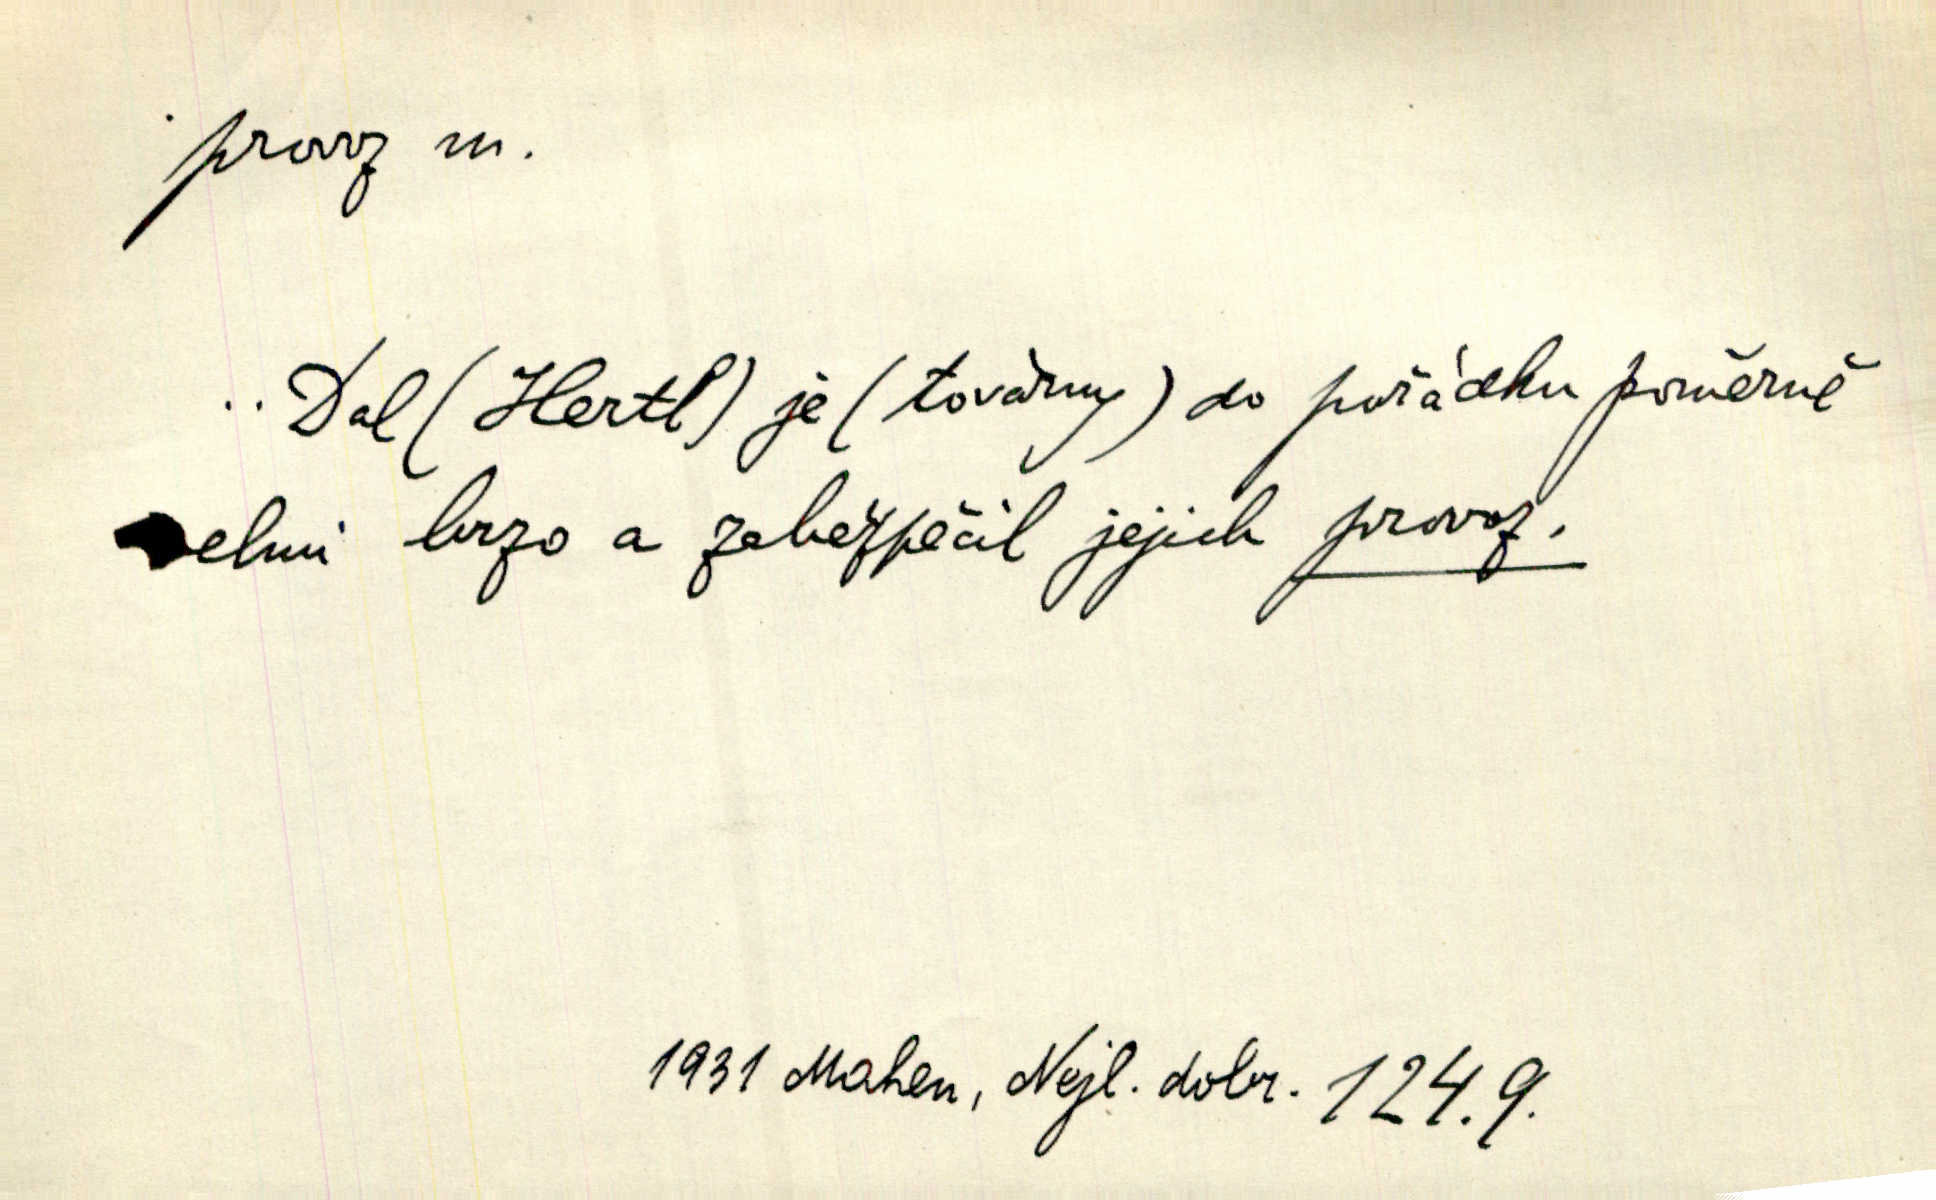 provoz m.
.. Dal (Hertl) je (továrny) do pořádku poměrně
velmi brzo a zabezpečil jejich provoz.
1931 Mahen, Nejl. dobr. 124.9.